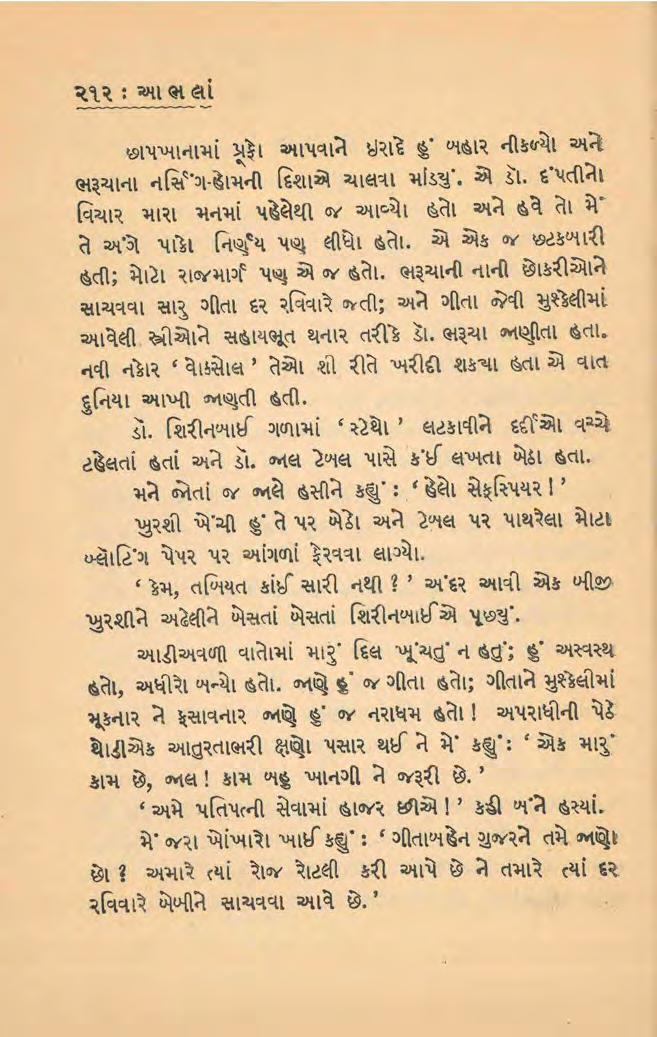 ૨૧૨ : આભલાં
છાપખાનામાં પ્રૂફો આપવાને ઇરાદે હું બહાર નીકળ્યો અને
ભરૂચાના નર્સિંગ-હોમની દિશાએ ચાલવા માંડ્યું. એ ડૉ. દંપતીનો
વિચાર મારા મનમાં પહેલેથી જ આવ્યો હતો અને હવે તો મેં
તે અંગે પાકો નિર્ણય પણ લીધો હતો. એ એક જ છટકબારી
હતી; મોટો રાજમાર્ગ પણ એ જ હતો. ભરૂચાની નાની છોકરીઓને
સાચવવા સારુ ગીતા દર રવિવારે જતી; અને ગીતા જેવી મુશ્કેલીમાં
આવેલી સ્ત્રીઓને સહાયભૂત થનાર તરીકે ડૉ. ભરૂચા જાણીતા હતા.
નવી નકોર ‘ વોક્સોલ ’ તેઓ શી રીતે ખરીદી શક્યા હતા એ વાત
દુનિયા આખી જાણતી હતી.
ડૉ. શિરીનબાઈ ગળામાં ‘ સ્ટેથો ’ લટકાવીને દર્દીઓ વચ્ચે
ટહેલતાં હતાં અને ડૉ. જાલ ટેબલ પાસે કંઈ લખતા બેઠા હતા.
મને જોતાં જ જાલે હસીને કહ્યું : ‘ હેલો સેક્રસ્પિયર ! ’
ખુરશી ખેંચી હું તે પર બેઠો અને ટેબલ પર પાથરેલા મોટા
બ્લૉટિંગ પેપર પર આંગળાં ફેરવવા લાગ્યો.
‘ કેમ, તબિયત કાંઈ સારી નથી ? ’ અંદર આવી એક બીજી
ખુરશીને અઢેલીને બેસતાં બેસતાં શિરીનબાઈએ પૂછ્યું.
આડીઅવળી વાતોમાં મારું દિલ ખૂંચતું ન હતું; હું અસ્વસ્થ
હતો, અધીરો બન્યો હતો. જાણે હું જ ગીતા હતો; ગીતાને મુશ્કેલીમાં
મૂકનાર ને ફસાવનાર જાણે હું જ નરાધમ હતો ! અપરાધીની પેઠે
થોડીએક આતુરતાભરી ક્ષણો પસાર થઈ ને મેં કહ્યું : ‘ એક મારું
કામ છે, જાલ ! કામ બહુ ખાનગી ને જરૂરી છે. ’
‘ અમે પતિપત્ની સેવામાં હાજર છીએ ! ’ કહી બંને હસ્યાં.
મેં જરા ખોંખારો ખાઈ કહ્યું : ‘ ગીતાબહેન ગુજરને તમે જાણો
છો ? અમારે ત્યાં રોજ રોટલી કરી આપે છે ને તમારે ત્યાં દર
રવિવારે બેબીને સાચવવા આવે છે. ’